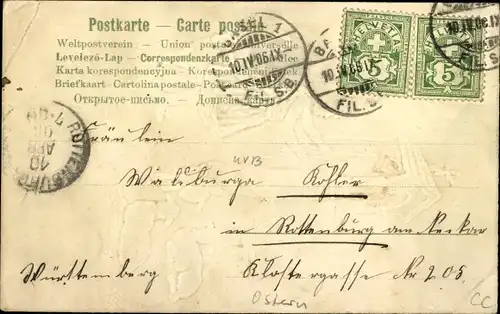 Postkarte — Carte postale
Weltpostverein — Union postale universelle
Levelező-Lap — Correspondenzkarte
Karta korespondencyjna — Korespondenční lístek
Briefkaart — Cartolina postale — Postcard
Открытое письмо. Дописна карта
10.IV.06.IX
FIL. S.B.
10.IV.06.IX
FIL. S.B.
HELVETIA
5
5
ROTTENBURG
10
APR
7-8N
Fräulein
Walburga Kohler
in Rottenburg am Neckar
Württemberg Klostergasse Nr 205
Ostern
CC